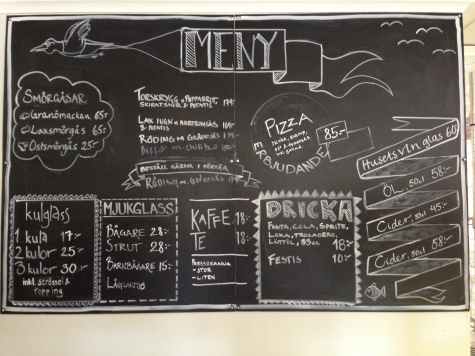 MENY
SMÖRGÅSAR
Granömackan 65:-
Laxsmörgås 65:-
Ostsmörgås 25:-
TORSKRYGG M PEPPARROT,
SKIRAT SMÖR & POTATIS
LAX UGN M
& POTATIS
RÖDING M
BESTÄLL GÄRNA I FÖRVÄG
RÖDING M
PIZZA
85:-
ERBJUDANDE
Husets vin glas 60:-
ÖL, 50cl 58:-
Cider, 50cl 45:-
Cider, 50cl 58:-
kulglass
1 kula 17:-
2 kulor 25:-
3 kulor 30:-
inkl. strössel &
topping
MJUKGLASS
BÄGARE 28:-
STRUT 28:-
BARNBÄGARE 15:-
LÅGLAKTOS
KAFFE 18:-
TE 18:-
PRESSOKANNA
- STOR
- LITEN
DRICKA
FANTA, COLA, SPRITE,
LOKA, TROCADERO,
LÄTTÖL, 33cl 18:-
FESTIS 10:-